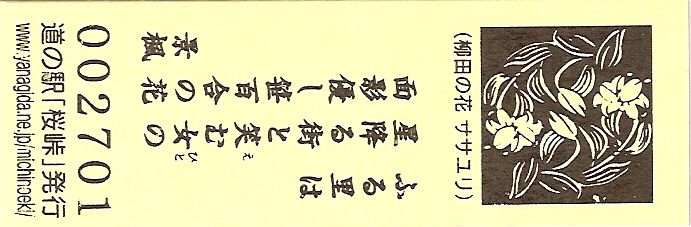 (柳田の花 ササユリ)
ふる里は
星降る街と笑む女の
え ひと
面影優し笹百合の花
景楓
002701
道の駅「桜峠」発行
www.yanagida.ne.jp/michinoeki/